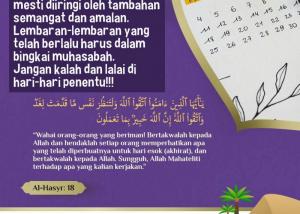 mesti diiringi oleh tambahan
semangat dan amalan.
Lembaran-lembaran yang
telah berlalu harus dalam
bingkai muhasabah.
Jangan kalah dan lalai di
hari-hari penentu!!!
4 5
8 9 10 11 12
15 16 17 18
25 26 27 28 29 30
يَٰٓأَيُّهَا ٱلَّذِينَ ءَامَنُوا۟ ٱتَّقُوا۟ ٱللَّهَ وَلْتَنظُرْ نَفْسٌ مَّا قَدَّمَتْ لِغَدٍ
وَٱتَّقُوا۟ ٱللَّهَ إِنَّ ٱللَّهَ خَبِيرٌۢ بِمَا تَعْمَلُونَ
"Wahai orang-orang yang beriman! Bertakwalah kepada
Allah dan hendaklah setiap orang memperhatikan apa
yang telah diperbuatnya untuk hari esok (akhirat), dan
bertakwalah kepada Allah. Sungguh, Allah Mahateliti
terhadap apa yang kalian kerjakan."
Al-Hasyr: 18